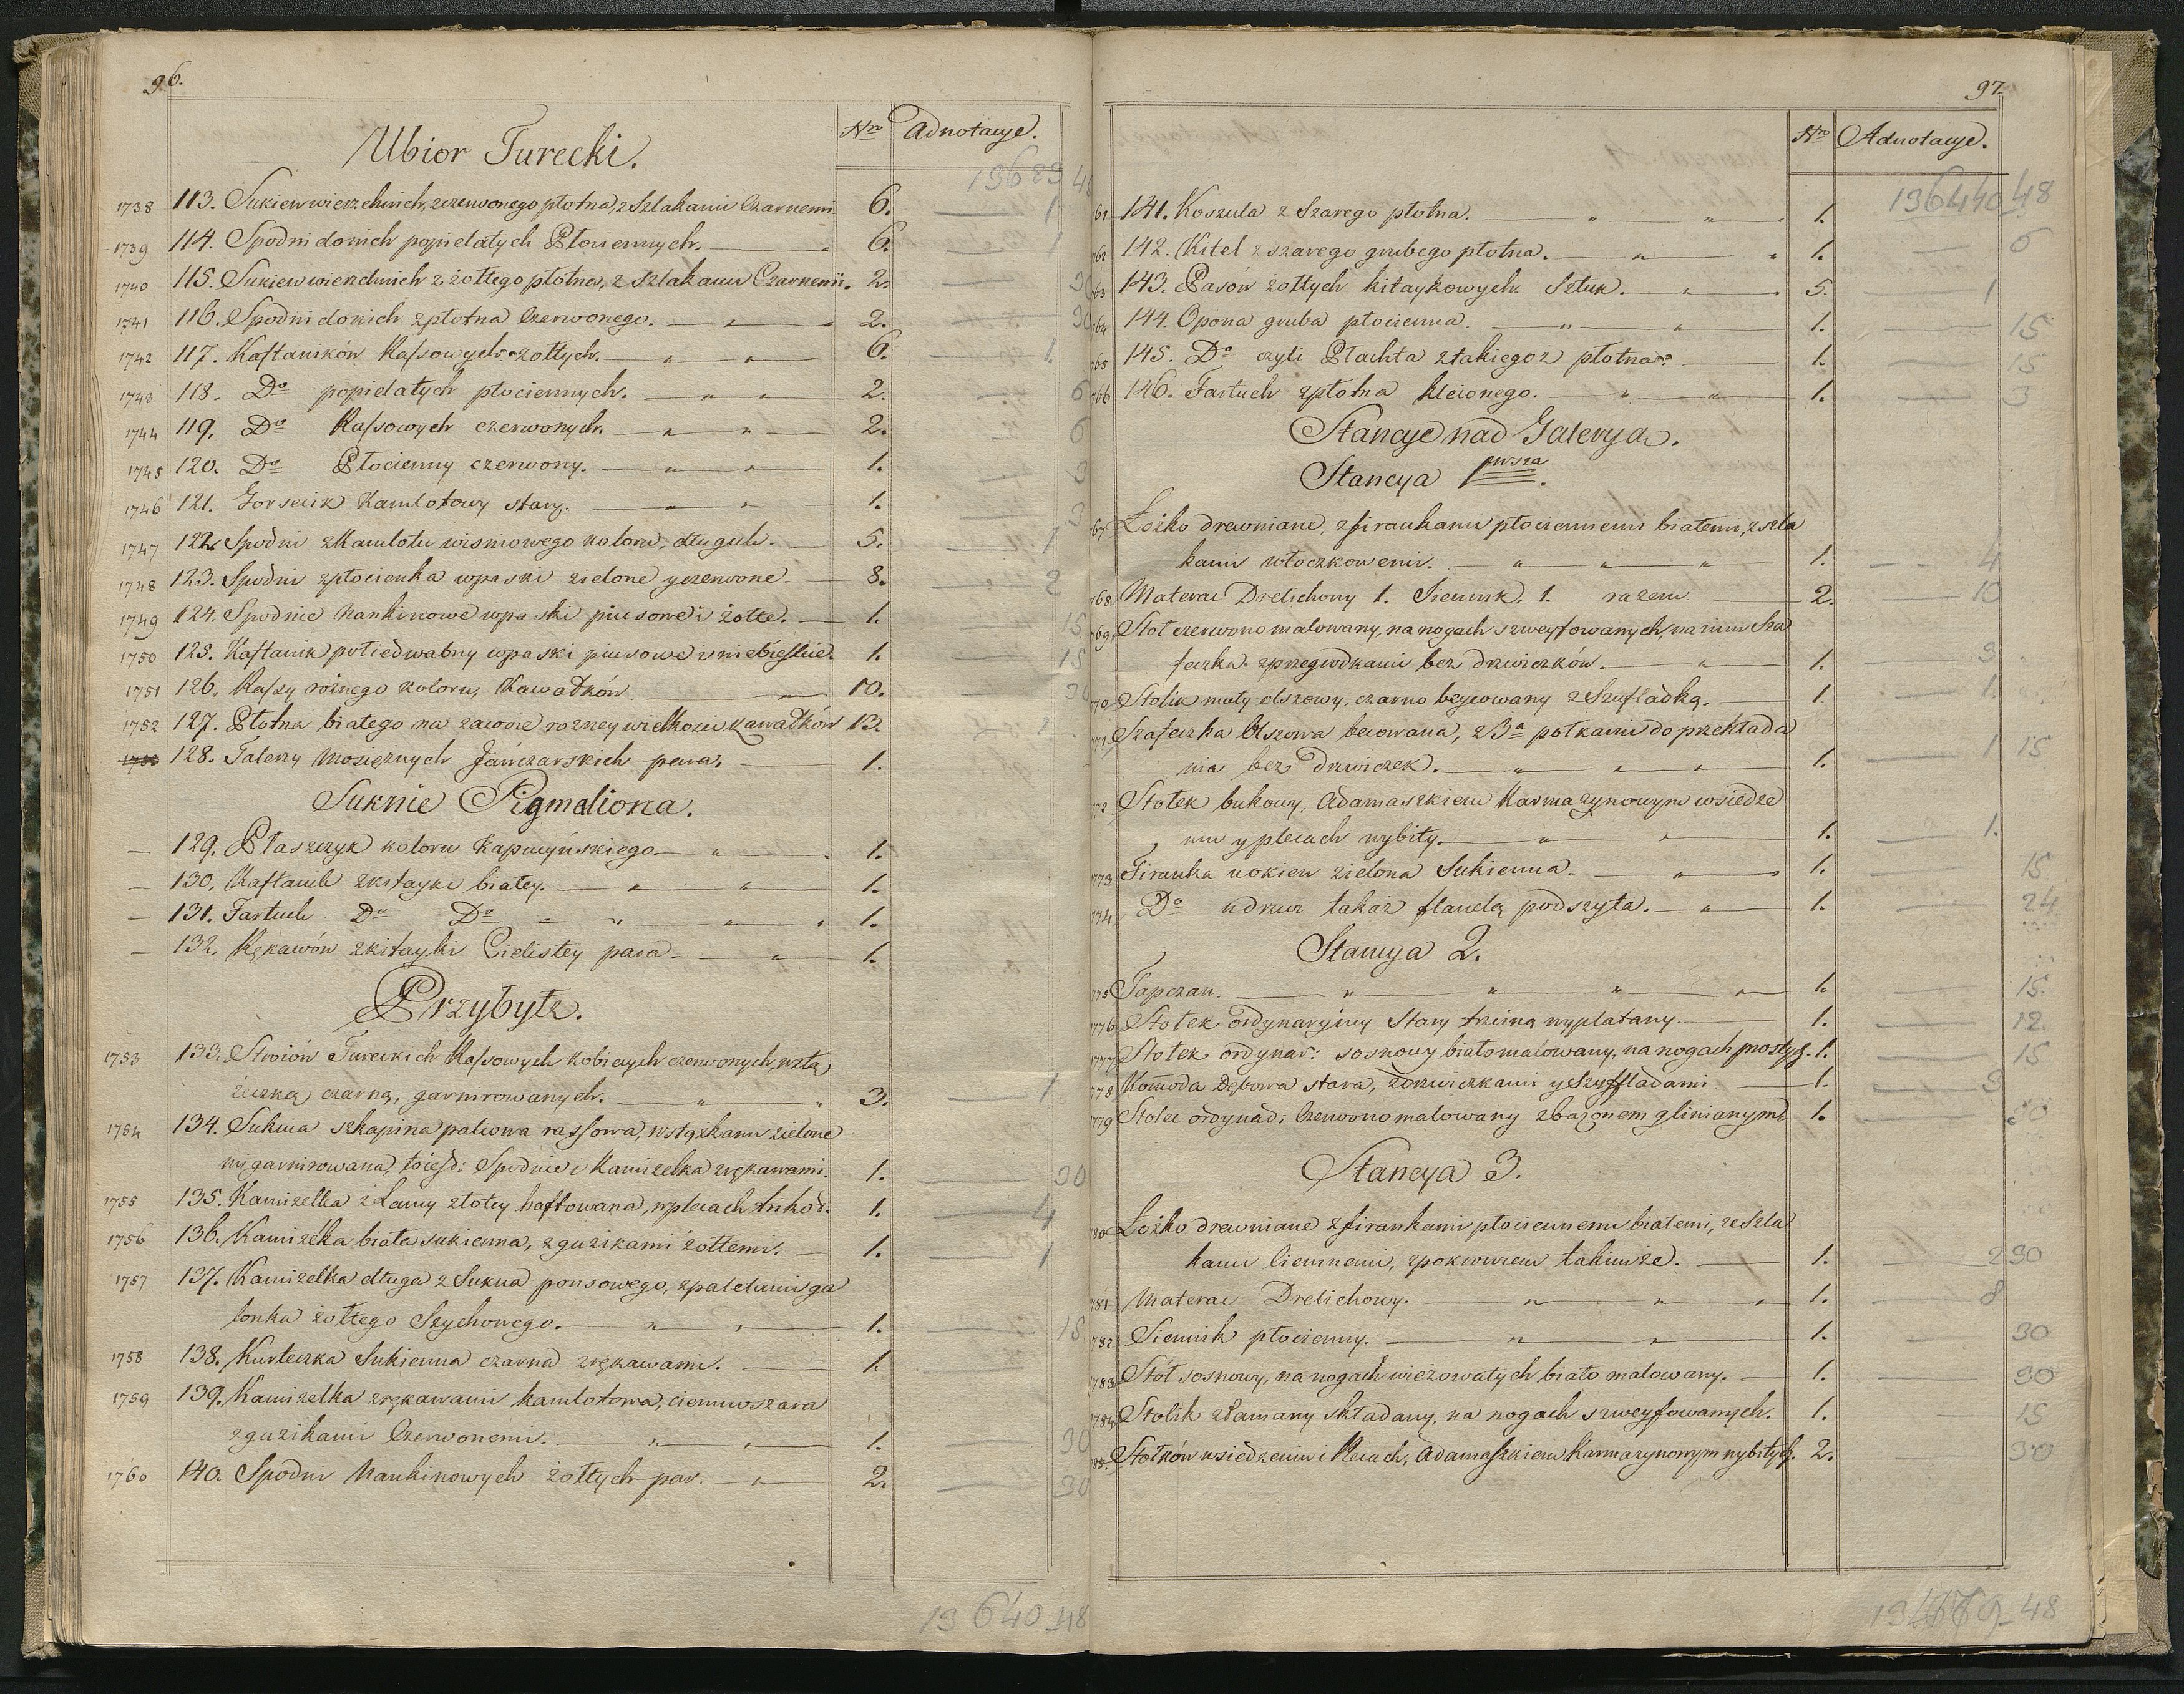 96.
Ubior Turecki.
Nro Adnotacye.
13623 48
1738 113. Sukien wierzchnich, z czerwonego płotna, z Szlakami Czarnemi. 6. 1
1739 114. Spodni do nich popielatych Płociennych. 6. 1
1740 115. Sukien wierzchnich z żołtego płotna, z szlakami Czarnemi. 2. 30
1741 116. Spodni do nich z płotna Czerwonego. 2. 30
1742 117. Kaftaników Rassowych żołtych. 6. 1
1743 118. Do popielatych płociennych. 2. 6
1744 119. Do Rassowych czerwonych. 2. 6
1745 120. Do Płocienny czerwony. 1. 3
1746 121. Gorsecik Kamlotowy stary. 1. 3
1747 122. Spodni z Kamlotu wisniowego koloru, długich. 5. 1
1748 123. Spodni z płocienka w paski zielone y czerwone. 8. 2
1749 124. Spodnie Nankinowe w paski piusowe i żołte. 1. 15
1750 125. Kaftanik połiedwabny w paski piusowe i niebieskie. 1. 15
1751 126. Rassy rożnego koloru, Kawałków. 10. 30
1752 127. Płotna białego na zawoie rozney wielkości kawałków 13. 1
128. Talerzy mosiężnych Jańczarskich para. 1.
Suknie Pigmaliona.
— 129. Płaszczyk koloru Kapucyńskiego. 1.
— 130. Kaftanik z kitayki białey. 1.
— 131. Fartuch Do Do 1.
— 132. Rękawów z kitayki Cielistey para. 1.
Przybyłe.
1753 133. Stroiów Tureckich Rassowych kobiecych czerwonych, wstą
żeczką czarną, garnirowanych. 3. 1
1754 134. Suknia szkapina paliowa rassowa, wstążkami zielone
mi garnirowana, toiest: Spodnie i Kamizelka z rękawami. 1. 30
1755 135. Kamizelka z Lamy złotey haftowana, w plecach trikot. 1. 4
1756 136. Kamizelka biała sukienna, z guzikami żołtemi. 1. 1
1757 137. Kamizelka długa z Sukna ponsowego, z paletami ga
lonka żołtego Szychowego. 1. 15
1758 138. Kurteczka Sukienna czarna z rękawami. 1.
1759 139. Kamizelka z rękawami kamlotowa, ciemnoszara
z guzikami Czerwonemi. 1. 30
1760 140. Spodni Nankinowych żołtych par. 2. 30
13640 48
97
Nro Adnotacye.
13640 48
761 141. Koszula z Szarego płotna. 1.
762 142. Kitel z szarego grubego płotna. 1. 6
763 143. Pasów żołtych kitaykowych Sztuk. 5. 1
764 144. Opona gruba płocienna. 1. 15
765 145. Do czyli Płachta z takiegoż płotna. 1. 15
766 146. Fartuch z płotna kleionego. 1. 3
Stancye nad Galeryą.
Stancya 1wsza.
767 Łożko drewniane, z firankami płociennemi białemi, z szla
kami włoczkowemi. 1. 4
768 Materac Drelichowy 1. Siennik. 1. razem. 2. 10
769 Stoł czerwono malowany, na nogach szweyfowanych, na nim Sza
feczka z przegrodkami bez drzwiczków. 1. 3
770 Stolik mały olszowy, czarno beycowany z Szufladką. 1. 1.
771 Szafeczka Olszowa becowana, z 3a połkami do przekłada
nia bez Drzwiczek. 1. 1 15
772 Stołek bukowy, Adamaszkiem Karmazynowym w siedze
niu y plecach wybity. 1. 1.
773 Firanka u okien zielona Sukienna. 1. 15
774 Do u drzwi takaż flanelą podszyta. 1. 24
Stancya 2.
775 Tapczan. 1. 15.
776 Stołek ordynaryiny Stary trzciną wyplatany. 1. 12.
777 Stołek ordynar: sosnowy biało malowany, na nogach prostych. 1. 15
778 Komoda Dębowa stara, z drzwiczkami y Szufladami. 1. 3
779 Stolec ordynar: Czerwono malowany z bazonem glinianym 1. 20
Stancya 3.
780 Łożko drewniane z firankami płociennemi białemi, ze Szla
kami Ciemnemi, z pokrowcem takimże. 1. 2 30
781 Materac Drelichowy. 1. 8
782 Siennik płocienny. 1. 30
783 Stół sosnowy, na nogach wieżowatych biało malowany. 1. 30
784 Stolik złamany składany, na nogach szweyfowanych. 1. 15
785 Stołków w siedzeniu i Plecach, Adamaszkiem Karmazynowym wybitych. 2. 30
48